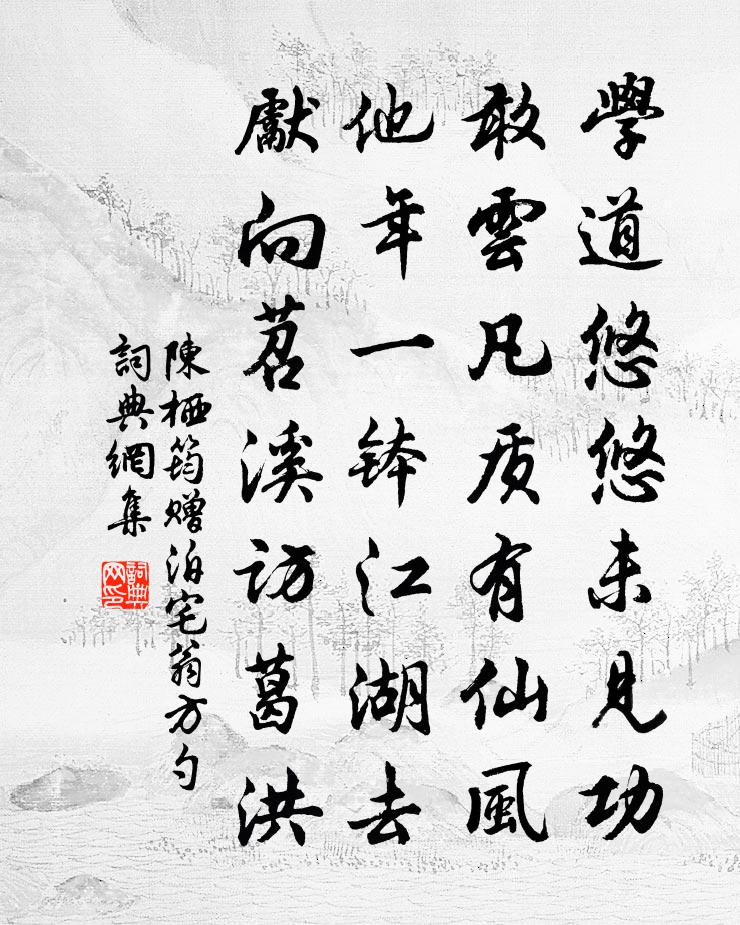 學道悠悠未見功
敢雲凡质有仙風
他年一钵江湖去
獻向苕溪访葛洪
陳栖筠赠泊宅翁方勺
詞典網集
詞典网印